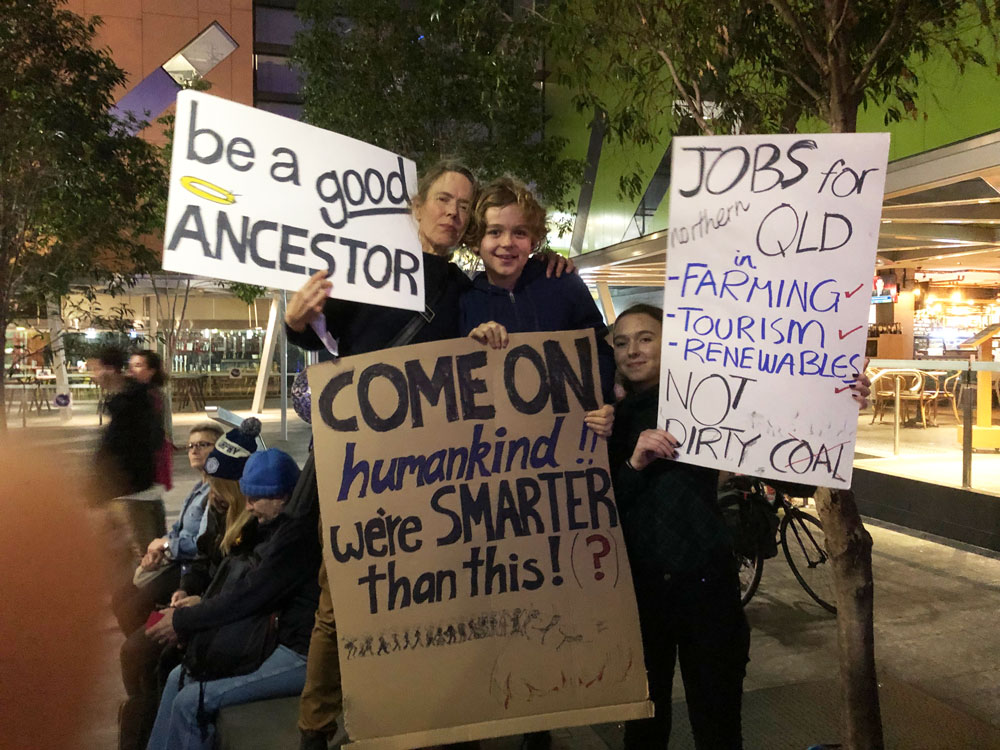 be a good
ANCESTOR
JOBS for
northern QLD
in
- FARMING ✓
- TOURISM ✓
- RENEWABLES ✓
NOT
DIRTY COAL
COME ON
humankind !!
we're SMARTER
than this! (?)